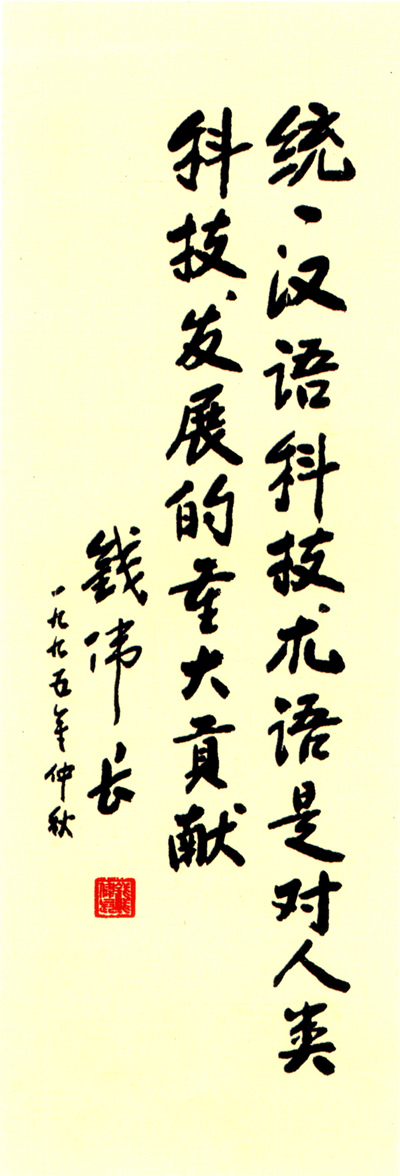 统一汉语科技术语是对人类
科技发展的重大貢献
钱伟长
一九九五年仲秋